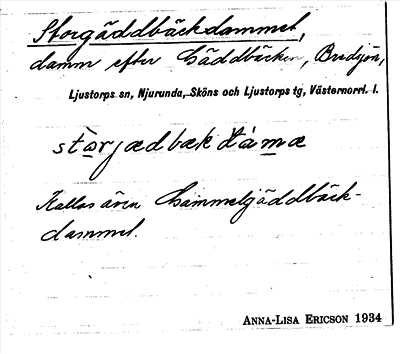 Storgäddbäckdammet,
damm efter Gäddbäcken, Bredsjön,
Ljustorps sn, Njurunda, Sköns och Ljustorps tg, Västernorrl. l.
storjædbæk dàmæ
Kallas även Gammelgäddbäck-
dammet.
ANNA-LISA ERICSON 1934